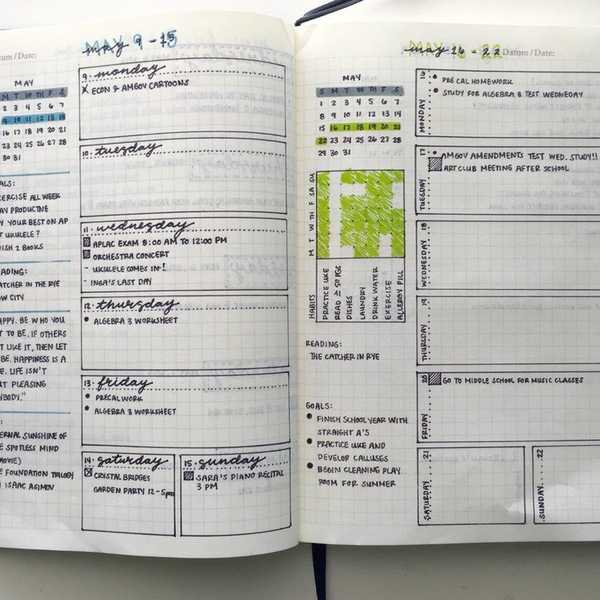 atum / Date:
MAY 9 - 15
MAY
S M T W T F S
1 2 3 4 5 6 7
8 9 10 11 12 13 14
15 16 17 18 19 20 21
22 23 24 25 26 27 28
29 30 31
ALS:
XERCISE ALL WEEK
AY PRODUCTIVE
Y YOUR BEST ON AP
T UKULELE?
NISH 2 BOOKS
EADING:
ATCHER IN THE RYE
OW CITY
APPY. BE WHO YOU
T TO BE. IF OTHERS
T LIKE IT, THEN LET
BE. HAPPINESS IS A
E. LIFE ISN'T
T PLEASING
YBODY."
ERNAL SUNSHINE OF
E SPOTLESS MIND
MOVIE)
E FOUNDATION TRILOGY
ISAAC ASIMOV
9. monday
X ECON & AMGOV CARTOONS
10. tuesday
11. wednesday
APLAC EXAM 8:00 AM TO 12:00 PM
ORCHESTRA CONCERT
- UKULELE COMES IN!
- INGA'S LAST DAY
12. thursday
• ALGEBRA 3 WORKSHEET
13. friday
• PRECAL WORK
• ALGEBRA 3 WORKSHEET
14. saturday
CRYSTAL BRIDGES
GARDEN PARTY 12-5pm
15. sunday
SARA'S PIANO RECITAL
3 PM
MAY 16 - 22
Datum / Date:
MAY
S M T W T F S
1 2 3 4 5 6 7
8 9 10 11 12 13 14
15 16 17 18 19 20 21
22 23 24 25 26 27 28
29 30 31
M T W TH F SA SU
HABITS
PRACTICE UKE
READ ≥ 50 PGS
DISHES
LAUNDRY
DRINK WATER
EXERCISE
ALLERGY PILL
READING:
THE CATCHER IN RYE
GOALS:
• FINISH SCHOOL YEAR WITH
STRAIGHT A'S
• PRACTICE UKE AND
DEVELOP CALLUSES
• BEGIN CLEANING PLAY
ROOM FOR SUMMER
MONDAY 16
• PRE CAL HOMEWORK
• STUDY FOR ALGEBRA 3 TEST WEDNEDAY
TUESDAY 17
• AMGOV AMENDMENTS TEST WED. STUDY!!
ART CLUB MEETING AFTER SCHOOL
WEDNESDAY 18
THURSDAY 19
FRIDAY 20
GO TO MIDDLE SCHOOL FOR MUSIC CLASSES
SATURDAY 21
SUNDAY 22